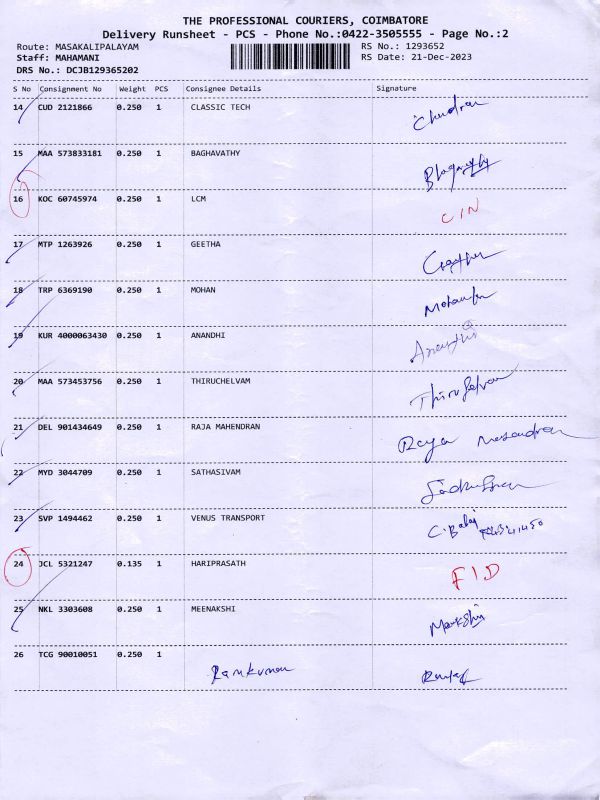 THE PROFESSIONAL COURIERS, COIMBATORE
Delivery Runsheet - PCS - Phone No.:0422-3505555 - Page No.:2
Route: MASAKALIPALAYAM RS No.: 1293652
Staff: MAHAMANI RS Date: 21-Dec-2023
DRS No.: DCJB129365202
S No Consignment No Weight PCS Consignee Details Signature
14 CUD 2121866 0.250 1 CLASSIC TECH Chandran
15 MAA 573833181 0.250 1 BAGHAVATHY
16 KOC 60745974 0.250 1 LCM CIN
17 MTP 1263926 0.250 1 GEETHA
18 TRP 6369190 0.250 1 MOHAN
19 KUR 4000063430 0.250 1 ANANDHI
20 MAA 573453756 0.250 1 THIRUCHELVAM
21 DEL 901434649 0.250 1 RAJA MAHENDRAN
22 MYD 3044709 0.250 1 SATHASIVAM
23 SVP 1494462 0.250 1 VENUS TRANSPORT C. Balaj
24 JCL 5321247 0.135 1 HARIPRASATH FID
25 NKL 3303608 0.250 1 MEENAKSHI
26 TCG 90010051 0.250 1 Ramkumar